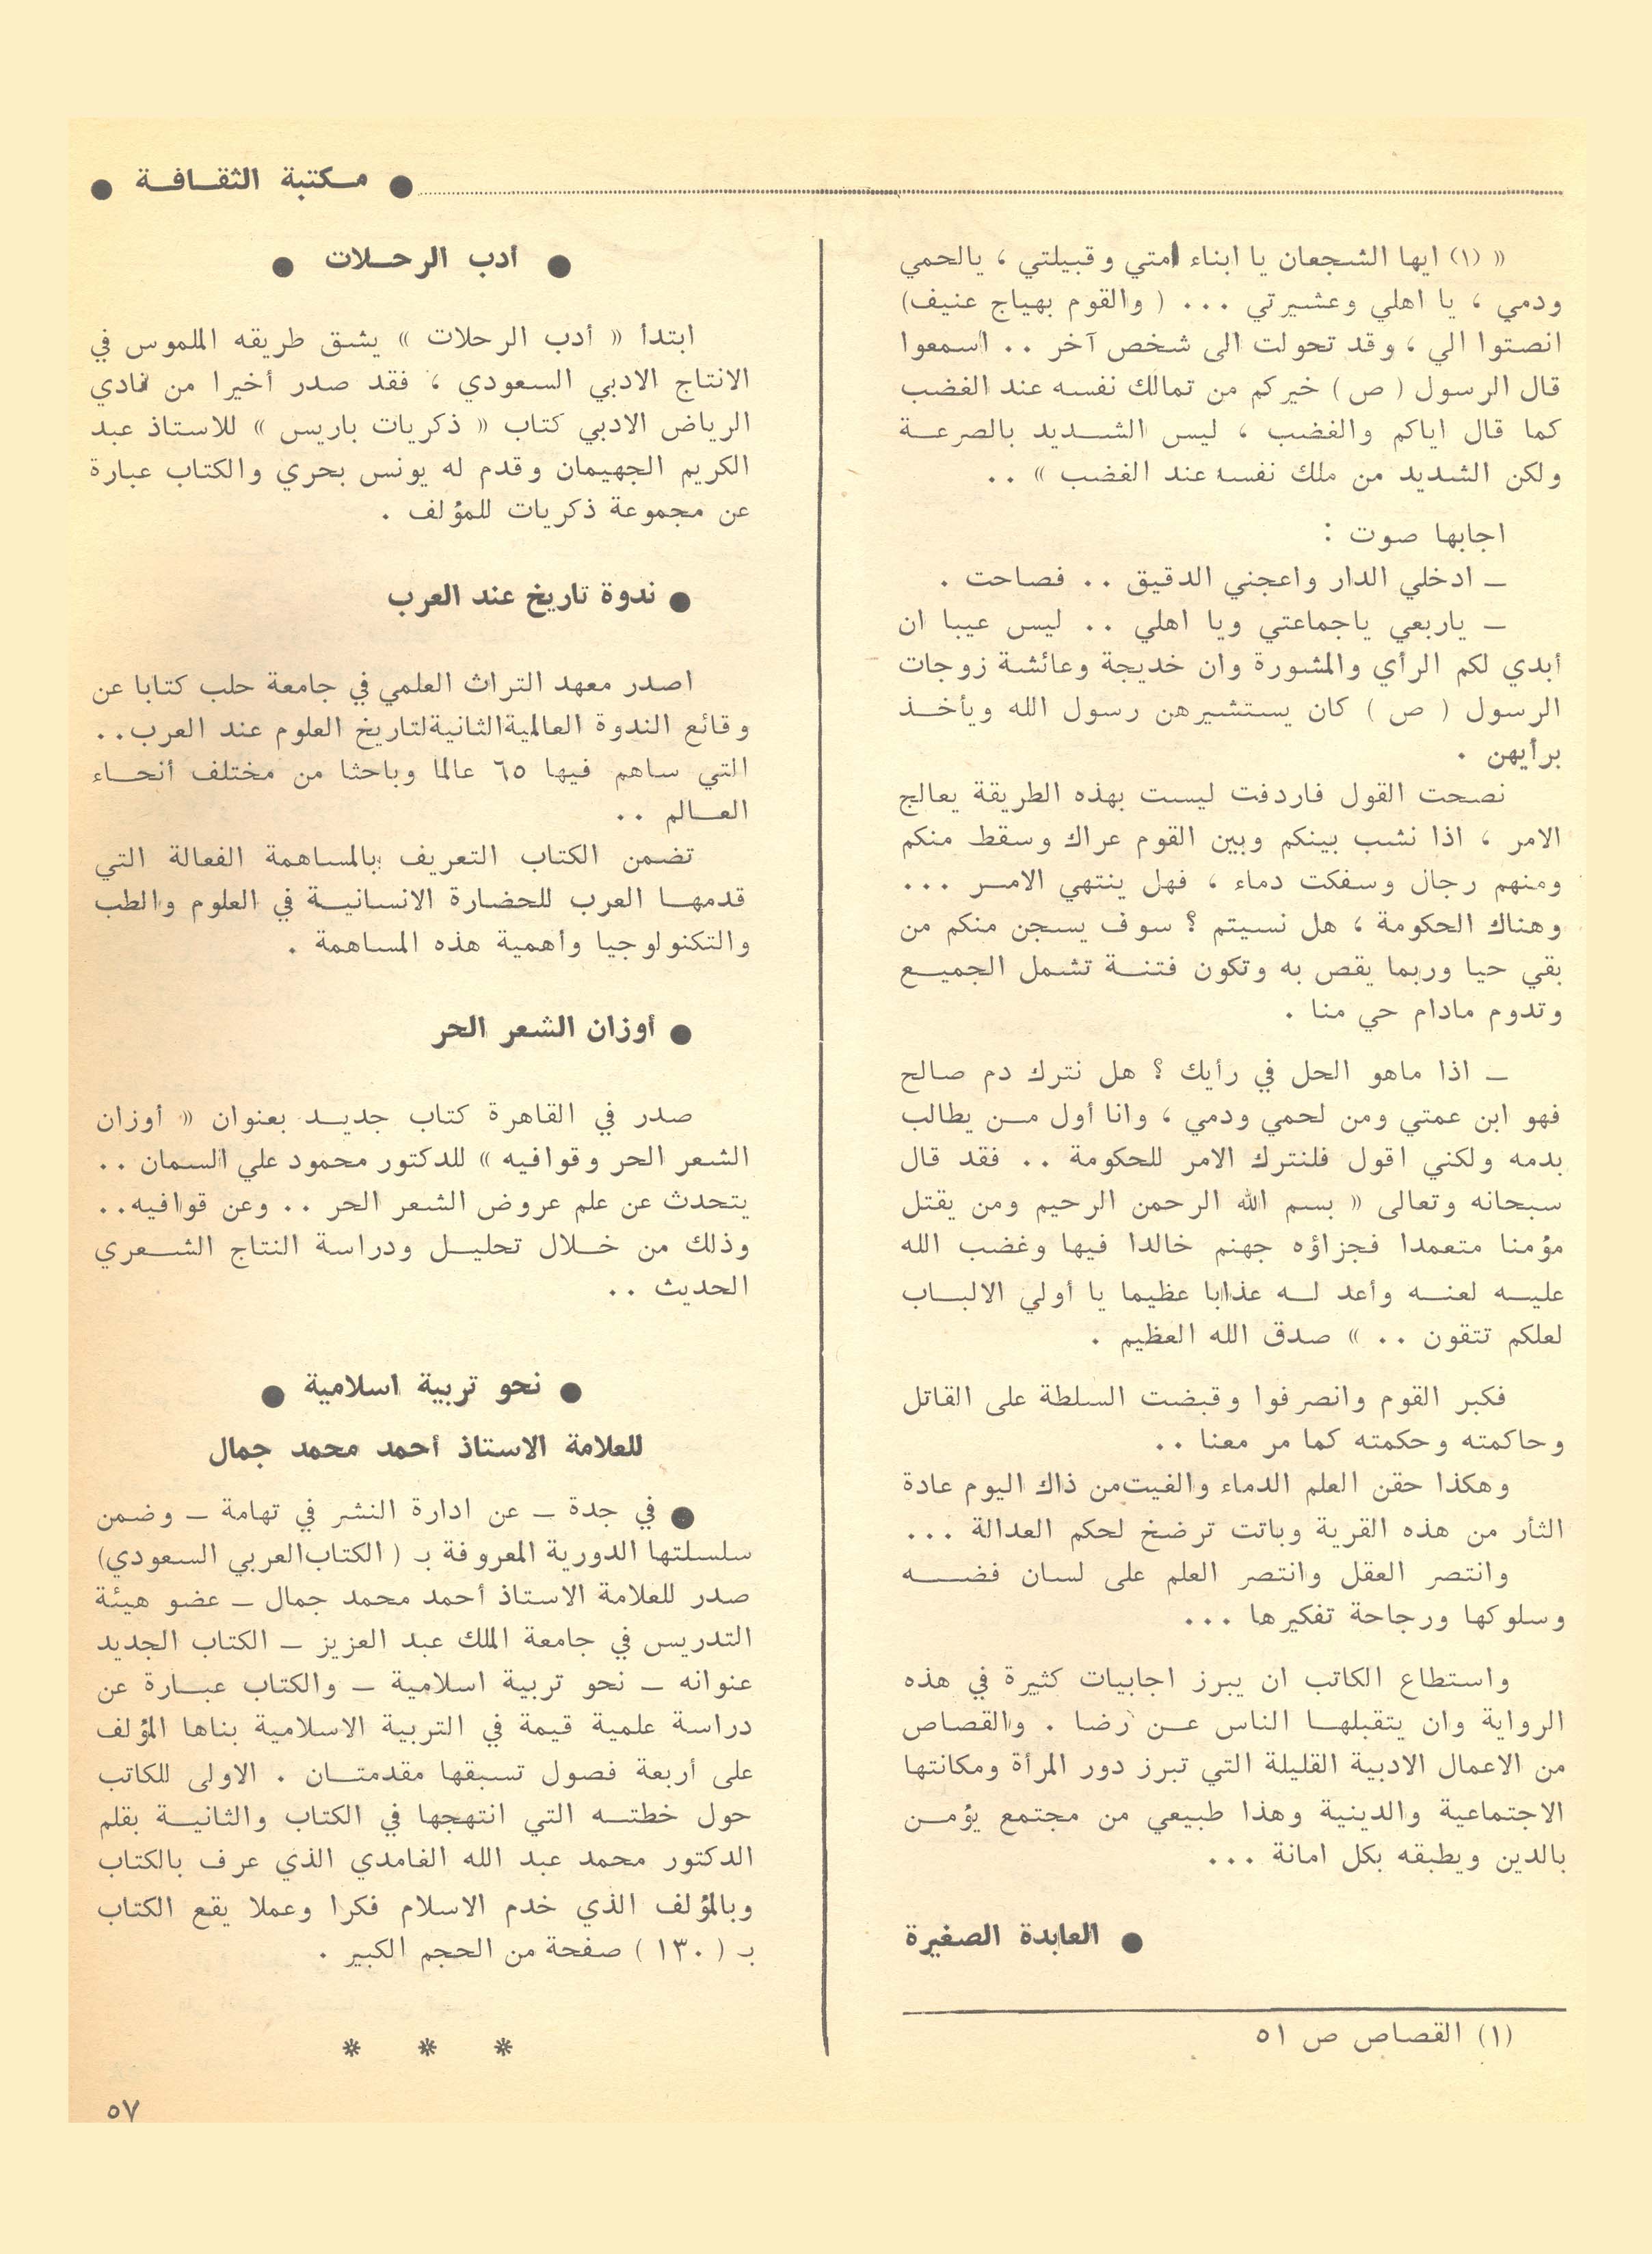 ● مكتبة الثقافة ●
« (١) ايها الشجعان يا ابناء امتي وقبيلتي ، يالحمي
ودمي ، يا اهلي وعشيرتي ... ( والقوم بهياج عنيف)
انصتوا الي ، وقد تحولت الى شخص آخر .. اسمعوا
قال الرسول ( ص ) خيركم من تمالك نفسه عند الغضب
كما قال اياكم والغضب ، ليس الشديد بالصرعة
ولكن الشديد من ملك نفسه عند الغضب » ..
اجابها صوت :
ـ ادخلي الدار واعجني الدقيق .. فصاحت .
ـ ياربعي ياجماعتي ويا اهلي .. ليس عيبا ان
أبدي لكم الرأي والمشورة وان خديجة وعائشة زوجات
الرسول ( ص ) كان يستشيرهن رسول الله ويأخذ
برأيهن .
نصحت القول فاردفت ليست بهذه الطريقة يعالج
الامر ، اذا نشب بينكم وبين القوم عراك وسقط منكم
ومنهم رجال وسفكت دماء ، فهل ينتهي الامر ...
وهناك الحكومة ، هل نسيتم ؟ سوف يسجن منكم من
بقي حيا وربما يقص به وتكون فتنة تشمل الجميع
وتدوم مادام حي منا .
ـ اذا ماهو الحل في رأيك ؟ هل نترك دم صالح
فهو ابن عمتي ومن لحمي ودمي ، وانا أول من يطالب
بدمه ولكني اقول فلنترك الامر للحكومة .. فقد قال
سبحانه وتعالى « بسم الله الرحمن الرحيم ومن يقتل
مؤمنا متعمدا فجزاؤه جهنم خالدا فيها وغضب الله
عليه لعنه وأعد له عذابا عظيما يا أولي الالباب
لعلكم تتقون .. » صدق الله العظيم .
فكبر القوم وانصرفوا وقبضت السلطة على القاتل
وحاكمته وحكمته كما مر معنا ..
وهكذا حقن العلم الدماء والغيت من ذاك اليوم عادة
الثأر من هذه القرية وباتت ترضخ لحكم العدالة ...
وانتصر العقل وانتصر العلم على لسان فضه
وسلوكها ورجاحة تفكيرها ...
واستطاع الكاتب ان يبرز اجابيات كثيرة في هذه
الرواية وان يتقبلها الناس عن رضا . والقصاص
من الاعمال الادبية القليلة التي تبرز دور المرأة ومكانتها
الاجتماعية والدينية وهذا طبيعي من مجتمع يؤمن
بالدين ويطبقه بكل امانة ...
● العابدة الصغيرة
(١) القصاص ص ٥١
● أدب الرحلات ●
ابتدأ « أدب الرحلات » يشق طريقه الملموس في
الانتاج الادبي السعودي ، فقد صدر أخيرا من نادي
الرياض الادبي كتاب « ذكريات باريس » للاستاذ عبد
الكريم الجهيمان وقدم له يونس بحري والكتاب عبارة
عن مجموعة ذكريات للمؤلف .
● ندوة تاريخ عند العرب
اصدر معهد التراث العلمي في جامعة حلب كتابا عن
وقائع الندوة العالمية الثانية لتاريخ العلوم عند العرب..
التي ساهم فيها ٦٥ عالما وباحثا من مختلف أنحاء
العالم ..
تضمن الكتاب التعريف بالمساهمة الفعالة التي
قدمها العرب للحضارة الانسانية في العلوم والطب
والتكنولوجيا وأهمية هذه المساهمة .
● أوزان الشعر الحر
صدر في القاهرة كتاب جديد بعنوان « أوزان
الشعر الحر وقوافيه » للدكتور محمود علي السمان ..
يتحدث عن علم عروض الشعر الحر .. وعن قوافيه..
وذلك من خلال تحليل ودراسة النتاج الشعري
الحديث ..
● نحو تربية اسلامية ●
للعلامة الاستاذ أحمد محمد جمال
● في جدة ـ عن ادارة النشر في تهامة ـ وضمن
سلسلتها الدورية المعروفة بـ ( الكتاب العربي السعودي)
صدر للعلامة الاستاذ أحمد محمد جمال ـ عضو هيئة
التدريس في جامعة الملك عبد العزيز ـ الكتاب الجديد
عنوانه ـ نحو تربية اسلامية ـ والكتاب عبارة عن
دراسة علمية قيمة في التربية الاسلامية بناها المؤلف
على أربعة فصول تسبقها مقدمتان . الاولى للكاتب
حول خطته التي انتهجها في الكتاب والثانية بقلم
الدكتور محمد عبد الله الغامدي الذي عرف بالكتاب
وبالمؤلف الذي خدم الاسلام فكرا وعملا يقع الكتاب
بـ ( ١٣٠ ) صفحة من الحجم الكبير .
* * *
٥٧